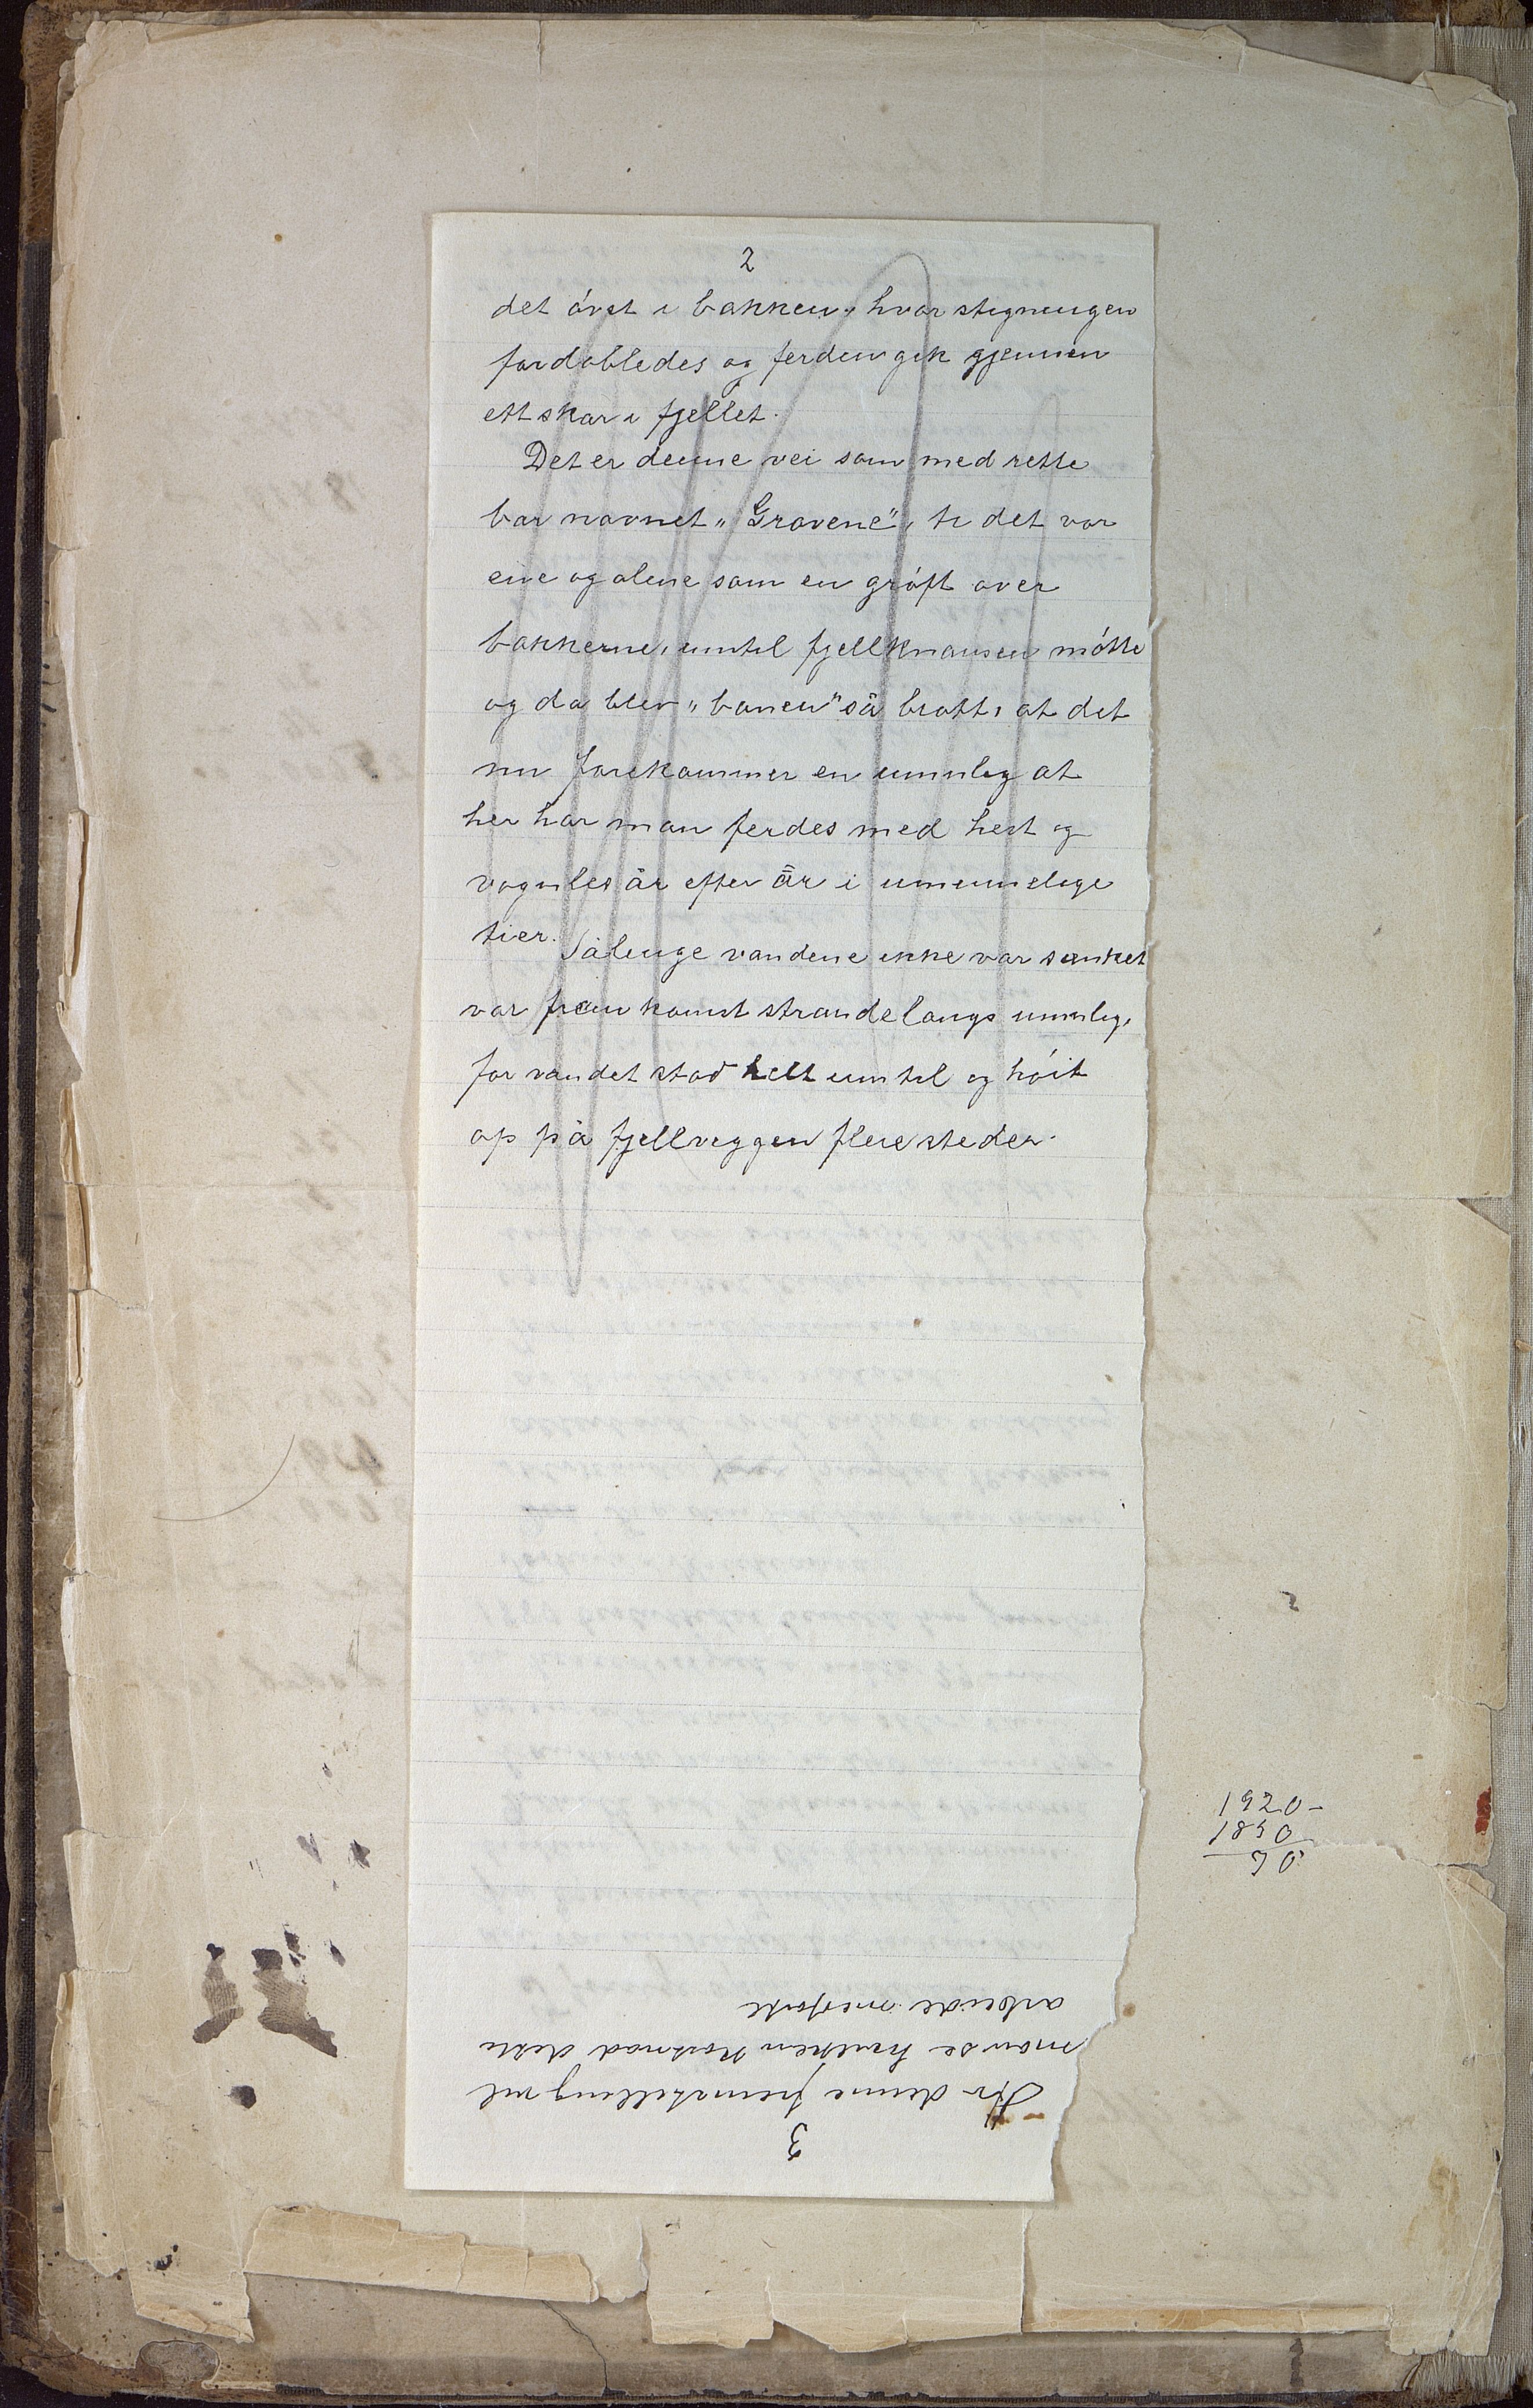 2
det óvst i bakken, hvor stigningen
fordobledes og ferden gik gjennen
ett skar i fjellet.
Det er denne vei som med rette
bar navnet „Gravene", ti det var
ene og alene som en gróft over
bakkerne, inntil fjellknausen mótte
og da blev „banen" så bratt, at det
nu forekommer en umulig at
her har man ferdes med hest og
vognles år efter år i uminnelige
tier.
Sålenge vandene ikke var senket
var fremkomst strandelangs umulig,
for vandet stod helt inntil og hóit
op på fjellveggen flere steder.
1920-
1850
70
3
Av denne fremstilling vil
man se hvilken kostnad dette
arbeide medførte